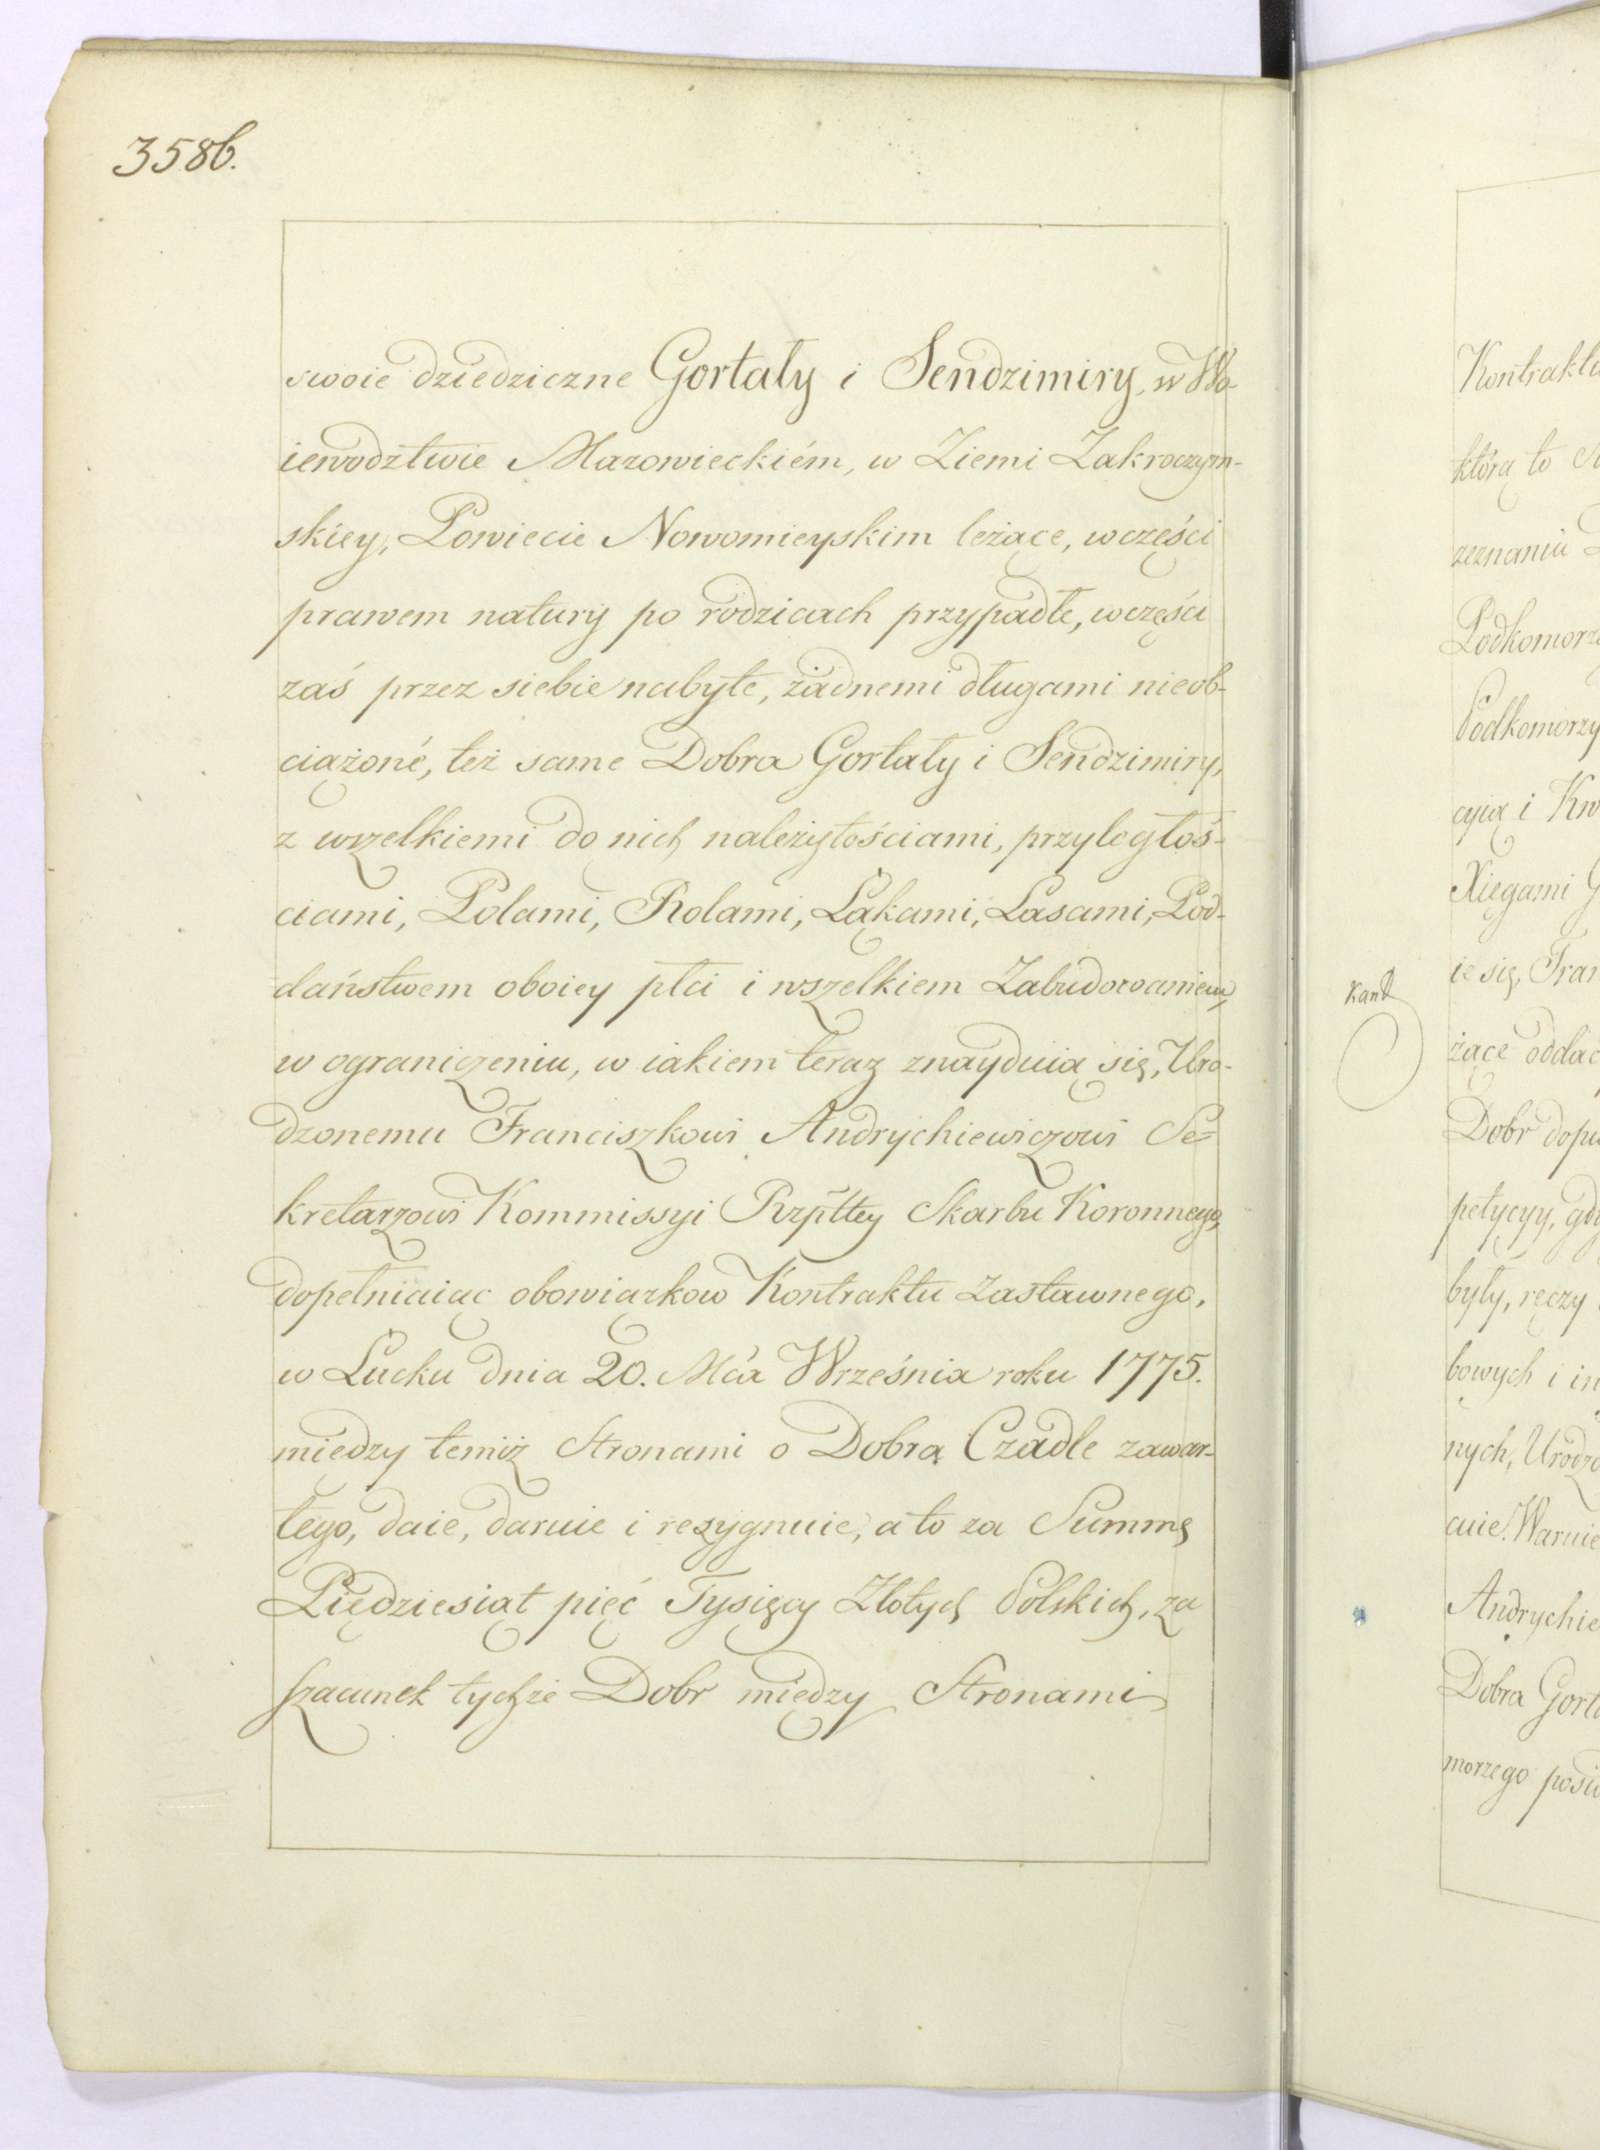 358b.
swoie dziedziczne Gortaty i Sendzimiry, w Wo-
iewodztwie Mazowieckiém, w Ziemi Zakroczym-
skiey, Powiecie Nowomieyskim leżące, w części
prawem natury po rodzicach przypadłe, w części
zaś przez siebie nabyte, żadnemi długami nieob-
ciążoné, też same Dobra Gortaty i Sendzimiry,
z wszelkiemi do nich należytościami, przyległoś-
ciami, Polami, Rolami, Łąkami, Lasami, Pod-
daństwem oboiey płci i wszelkiem Zabudowaniem,
w ograniczeniu, w iakiem teraz znayduią się, Uro-
dzonemu Franciszkowi Andrychiewiczowi Se-
kretarzowi Kommissyi Rzpltey Skarbu Koronnego,
dopełniaiąc obowiązkow Kontraktu Zastawnego,
w Łucku dnia 20. Mca Września roku 1775.
między temiż Stronami o Dobra Czadle zawar-
tego, daie, daruie i rezygnuie, a to za Summę
Pięćdziesiąt pięć Tysięcy Złotych Polskich, za
szacunek tychże Dobr między Stronami
Kontraktu
którą to
zeznaniu
Podkomorz
Podkomorzy
cyią i Kw
Xięgami G
ie się, Fran
żące oddać
Dobr dopu
petycyy, gdy
były, ręczy
bowych i in
nych, Urodzo
cuie. Waruie
Andrychie
Dobra Gorta
morzego posia